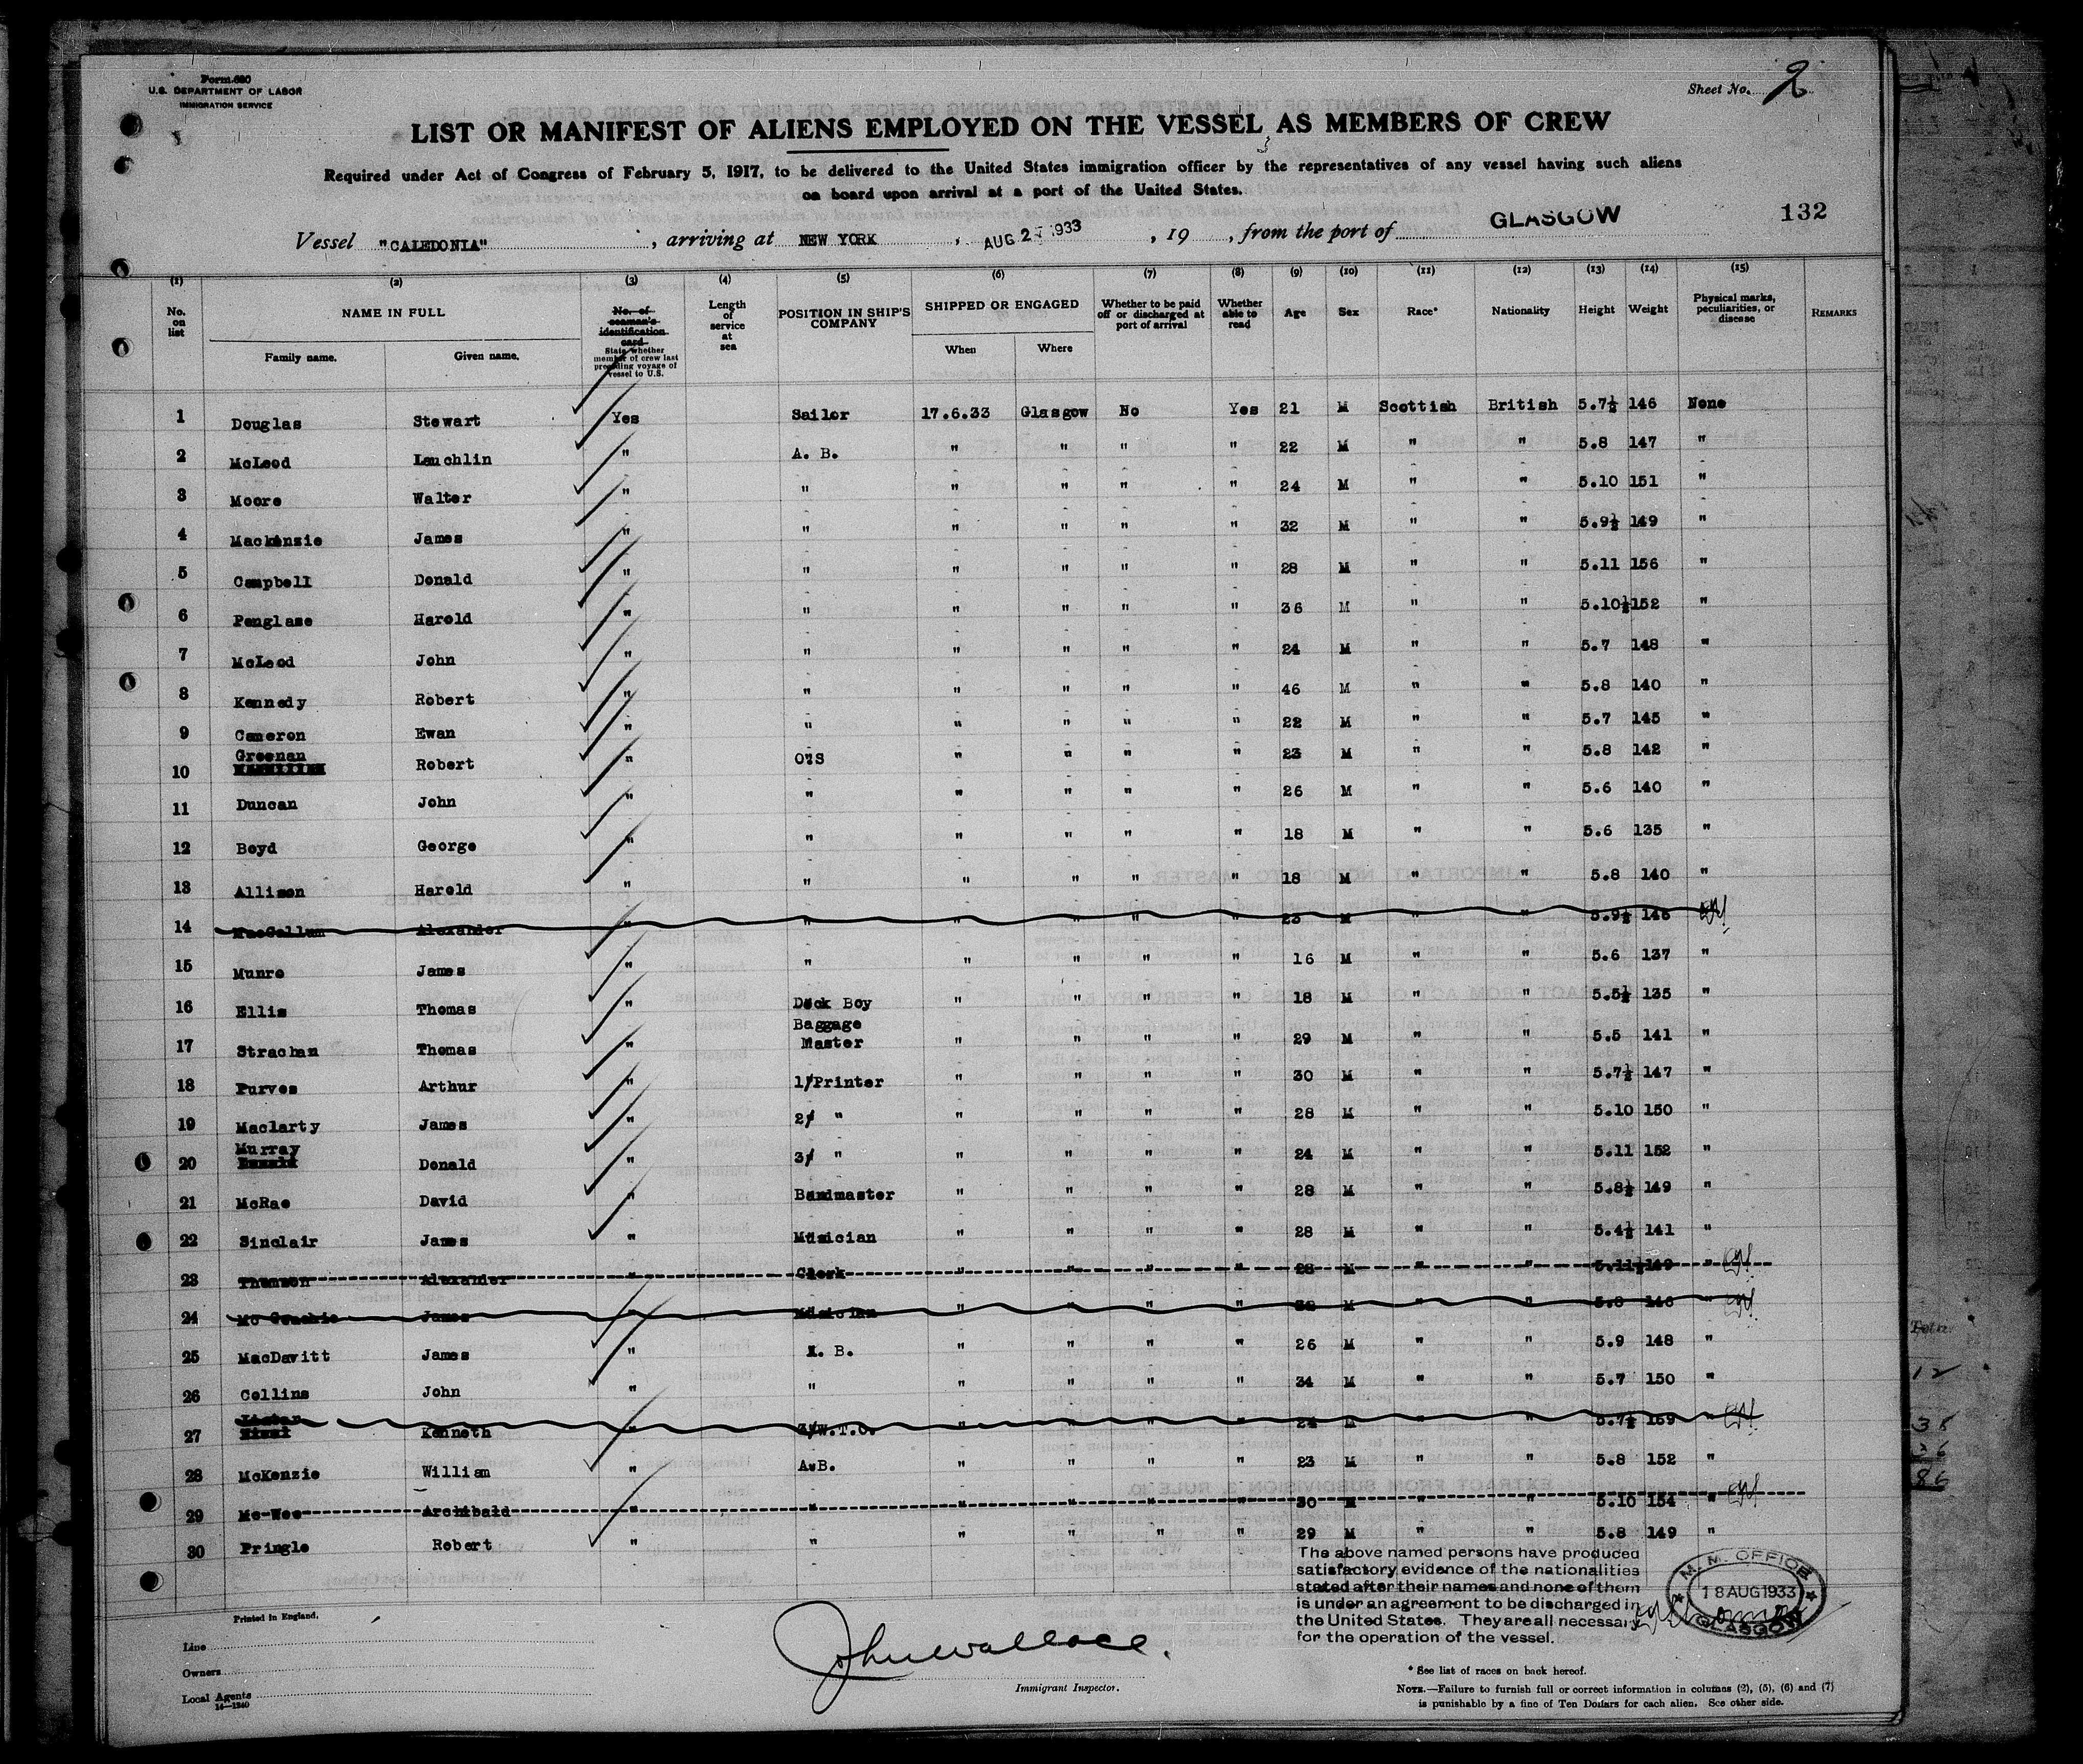 Form 680
U.S. DEPARTMENT OF LABOR
IMMIGRATION SERVICE
Sheet No. 2
LIST OR MANIFEST OF ALIENS EMPLOYED ON THE VESSEL AS MEMBERS OF CREW
Required under Act of Congress of February 5, 1917, to be delivered to the United States immigration officer by the representatives of any vessel having such aliens
on board upon arrival at a port of the United States.
Vessel "CALEDONIA", arriving at NEW YORK, AUG 27 1933, 19, from the port of GLASGOW 132
(1) (2) (3) (4) (5) (6) (7) (8) (9) (10) (11) (12) (13) (14) (15)
No. on list NAME IN FULL Family name. Given name. No. of seaman's identification card State whether member of crew last preceding voyage of vessel to U.S. Length of service at sea POSITION IN SHIP'S COMPANY SHIPPED OR ENGAGED When Where Whether to be paid off or discharged at port of arrival Whether able to read Age Sex Race* Nationality Height Weight Physical marks, peculiarities, or disease REMARKS
1 Douglas Stewart Yes Sailor 17.6.33 Glasgow No Yes 21 M Scottish British 5.7½ 146 None
2 McLeod Lauchlin " A. B. " " " " 22 M " " 5.8 147 "
3 Moore Walter " " " " " " 24 M " " 5.10 151 "
4 Mackenzie James " " " " " " 32 M " " 5.9½ 149 "
5 Campbell Donald " " " " " " 28 M " " 5.11 156 "
6 Penglase Harold " " " " " " 36 M " " 5.10½ 152 "
7 McLeod John " " " " " " 24 M " " 5.7 148 "
8 Kennedy Robert " " " " " " 46 M " " 5.8 140 "
9 Cameron Ewan " " " " " " 22 M " " 5.7 145 "
10 Greenan Robert " O:S " " " " 23 M " " 5.8 142 "
11 Duncan John " " " " " " 26 M " " 5.6 140 "
12 Boyd George " " " " " " 18 M " " 5.6 135 "
13 Allison Harold " " " " " " 18 M " " 5.8 140 "
14 MacCallum Alexander " " " " " " 23 M " " 5.9½ 146
15 Munro James " " " " " " 16 M " " 5.6 137 "
16 Ellis Thomas " Deck Boy " " " " 18 M " " 5.5½ 135 "
17 Strachan Thomas " Baggage Master " " " " 29 M " " 5.5 141 "
18 Purves Arthur " 1/Printer " " " " 30 M " " 5.7½ 147 "
19 Maclarty James " 2/ " " " " " 28 M " " 5.10 150 "
20 Murray Donald " 3/ " " " " " 24 M " " 5.11 152 "
21 McRae David " Bandmaster " " " " 28 M " " 5.8½ 149 "
22 Sinclair James " Musician " " " " 28 M " " 5.4½ 141 "
23 Thomson Alexander " Clerk " " " " 28 M " " 5.11½ 149 "
24 Mc Geachie James Musician " " " " M " " 5.8 146 "
25 MacDavitt James " A. B. " " " " 26 M " " 5.9 148 "
26 Collins John " " " " " " 34 M " " 5.7 150 "
27 Kenneth " 3/W.T.O. " " " " 24 M " " 5.7½ 159 "
28 McKenzie William " A.B. " " " " 23 M " " 5.8 152 "
29 Mc Wee Archibald " " " " " " 30 M " " 5.10 154 "
30 Pringle Robert " " " " " " 29 M " " 5.8 149 "
The above named persons have produced
satisfactory evidence of the nationalities
stated after their names and none of them
is under an agreement to be discharged in
the United States. They are all necessary
for the operation of the vessel.
M. M. OFFICE
18 AUG 1933
GLASGOW
Printed in England.
Line
Owners
Local Agents
14—1240
John Wallace.
Immigrant Inspector.
* See list of races on back hereof.
NOTE.—Failure to furnish full or correct information in columns (2), (5), (6) and (7)
is punishable by a fine of Ten Dollars for each alien. See other side.